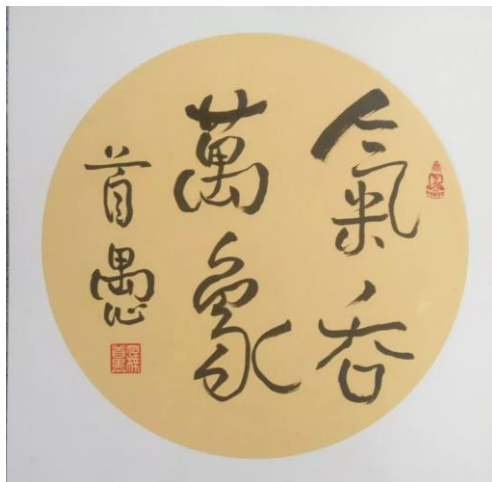 氣吞
萬象
首愚